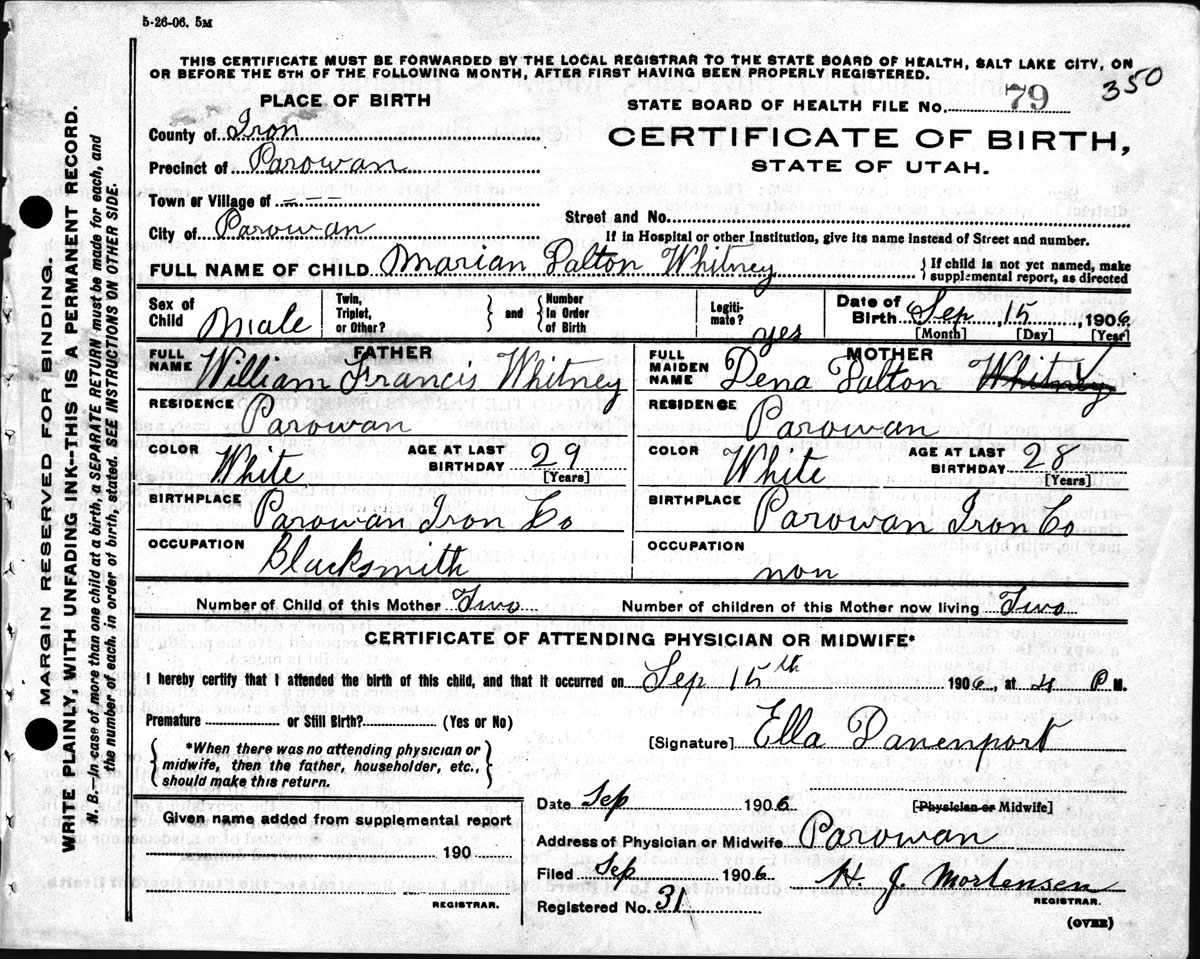 5-26-06. 5M
THIS CERTIFICATE MUST BE FORWARDED BY THE LOCAL REGISTRAR TO THE STATE BOARD OF HEALTH, SALT LAKE CITY, ON
OR BEFORE THE 5TH OF THE FOLLOWING MONTH, AFTER FIRST HAVING BEEN PROPERLY REGISTERED.
350
PLACE OF BIRTH
STATE BOARD OF HEALTH FILE No. 79
County of Iron
CERTIFICATE OF BIRTH,
STATE OF UTAH.
Precinct of Parowan
Town or Village of ---
Street and No.
City of Parowan
If in Hospital or other Institution, give its name instead of Street and number.
FULL NAME OF CHILD Marian Dalton Whitney { If child is not yet named, make
supplemental report, as directed
Sex of Child Male Twin, Triplet, or Other? } and { Number In Order of Birth Legiti-mate? yes Date of Birth Sep 15, 1906
[Month] [Day] [Year]
FATHER
FULL NAME William Francis Whitney
RESIDENCE Parowan
COLOR White AGE AT LAST BIRTHDAY 29 [Years]
BIRTHPLACE Parowan Iron Co
OCCUPATION Blacksmith
MOTHER
FULL MAIDEN NAME Dena Dalton Whitney
RESIDENCE Parowan
COLOR White AGE AT LAST BIRTHDAY 28 [Years]
BIRTHPLACE Parowan Iron Co
OCCUPATION non
Number of Child of this Mother Two Number of children of this Mother now living Two
CERTIFICATE OF ATTENDING PHYSICIAN OR MIDWIFE*
I hereby certify that I attended the birth of this child, and that it occurred on Sep 15th 1906, at 4 P. M.
Premature or Still Birth? (Yes or No)
{ *When there was no attending physician or
midwife, then the father, householder, etc.,
should make this return. }
[Signature] Ella Davenport
Date Sep 1906 [Physician or Midwife]
Given name added from supplemental report
190
REGISTRAR.
Address of Physician or Midwife Parowan
Filed Sep 1906 H. J. Mortensen
REGISTRAR.
Registered No. 31
(OVER)
MARGIN RESERVED FOR BINDING.
WRITE PLAINLY, WITH UNFADING INK--THIS IS A PERMANENT RECORD.
N. B.—In case of more than one child at a birth, a SEPARATE RETURN must be made for each, and
the number of each, in order of birth, stated. SEE INSTRUCTIONS ON OTHER SIDE.